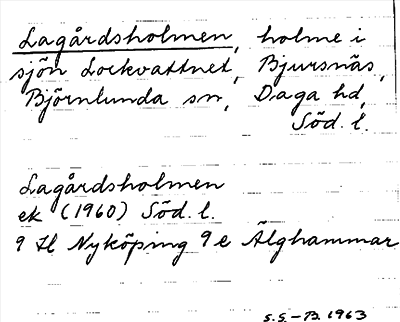 Lagårdsholmen, holme i
sjön Lockvattnet, Bjursnäs,
Björnlunda sn, Daga hd,
Söd. l.
Lagårdsholmen
ek (1960) Söd. l.
9 H Nyköping 9 e Älghammar
S.S.-B. 1963